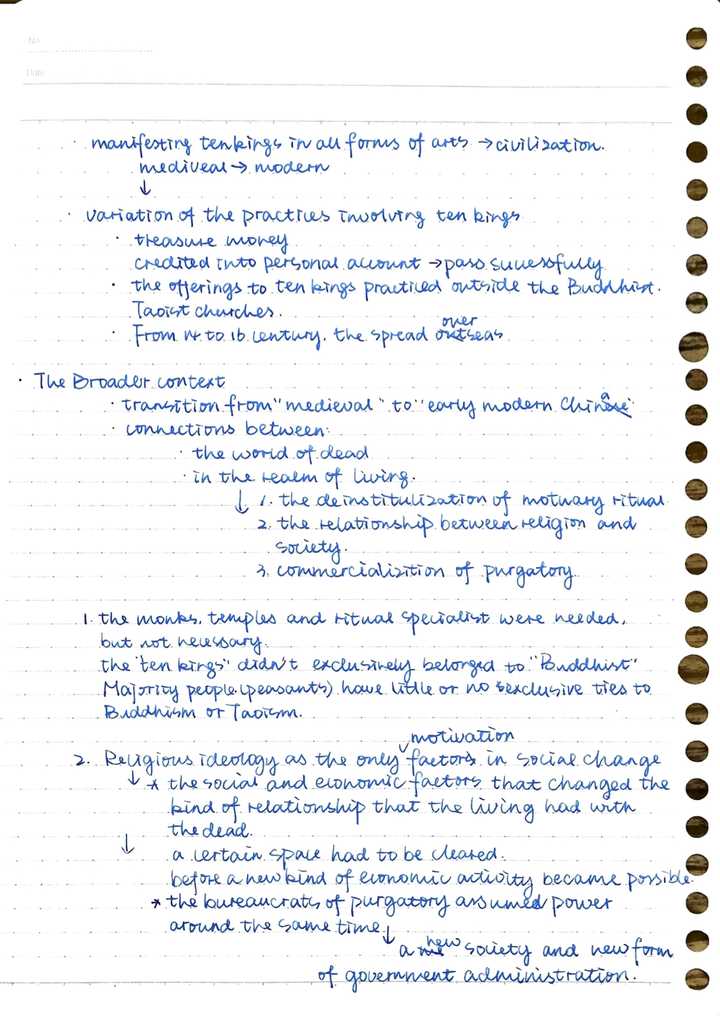 No.
Date
· manifesting ten kings in all forms of arts → civilization.
mediveal → modern
↓
· variation of the practices involving ten kings
· treasure money
credited into personal account → pass successfully
· the offerings to ten kings practiced outside the Buddhist.
Taoist churches.
over
· From 14 to 16 century. the spread outseas
· The Broader context
a
· transition from "medieval" to "early modern Chinese"
· connections between:
· the world of dead
· in the realm of living.
↓ 1. the deinstitulization of motuary ritual
2. the relationship between religion and
society.
3. commercializition of purgatory
1. the monks, temples and ritual specialist were needed,
but not necessary.
the "ten kings" didn't exclusively belonged to "Buddhist"
Majority people (peasants) have little or no exclusive ties to
Buddhism or Taoism.
motivation
2. Religious ideology as the only factors in social change
↓ * the social and economic factors that changed the
kind of relationship that the living had with
the dead.
↓ a certain space had to be cleared.
before a new kind of economic activity became possible.
* the bureaucrats of purgatory assumed power
around the same time ↓
new
a society and new form
of government administration.